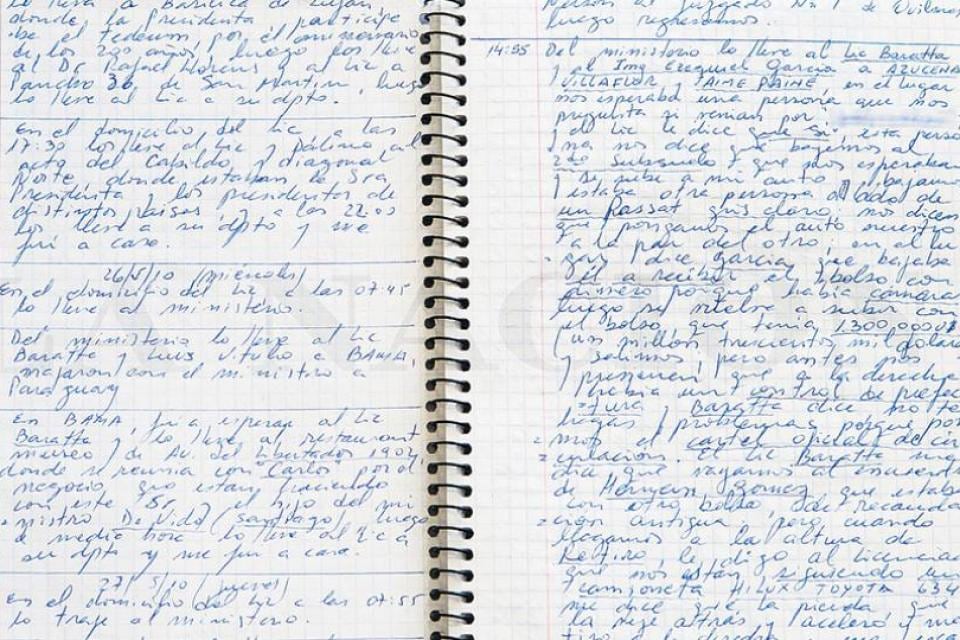 lo llevé a Basílica de Luján
donde la Presidenta, participe
de el tedeum por el aniversario
de los 200 años, luego los lleve
al Dr. Rafael y al Lic a
Pancho 36, de San Martín, luego
lo lleve al Lic a su dpto.
En el domicilio, del Lic, a las
17:30 los lleve al Lic y Palina al
acto del Cabildo, y diagonal
Norte, donde estaban la Sra
Presidenta y los presidentes de
distintos países, y a las 22:00
los lleve a su dpto y me
fui a casa.
26/5/10 (miércoles)
En el domicilio del Lic a las 07:45
lo lleve al ministerio.
Del ministerio lo lleve al Lic
Baratta y Luis Vitulo a BAMA,
viajaron con el ministro a
Paraguay
En BAMA, fui a esperar al Lic
Baratta y lo lleve, al restaurant
museo, de Av. del Libertador 1902,
donde se reunia con "Carlos" por el
negocio que estan haciendo
con este Sr. el hijo del mi
nistro De Vido (Santiago), luego
de media hora lo lleve al Lic a
su dpto y me fui a casa.
27/5/10 (jueves)
En el domicilio del Lic a las 07:55
lo traje al ministerio.
person al Juzgado Nº 1 de Quilmes
luego regresamos.
14:55 Del ministerio lo lleve al Lic Baratta
y al Ing Ezequiel García a AZUCENA
VILLAFLOR JAIME PAINE, en el lugar
nos esperaba una persona que nos
pregunta si venian por
y el Lic le dice que si, esta perso
na nos dice que bajemos al
2do Subsuelo y que nos esperaban
y se sube a mi auto y bajamos
y estaba otra persona al lado de
un Passat gris claro, nos dicen
que pongamos el auto nuestro
a la par del otro, en al lu
gar, dice García, que bajaba
él a recibir el bolso con
dinero porque había cámaras
luego se vuelve a subir con
el bolso, que tenia 1.300.000U$
(un millón trescientos mil dolares)
y salimos pero antes nos
previenen que a la derecha
había un control de prefec
tura y Baratta dice no te
hagas problemas porque por
mos el cartel oficial de cir
culación. El Lic Baratta me
dice que vayamos al encuentro
de Hernan Gomez que estaba
con otro bolso de recauda
cion antigua, pero cuando
llegamos a la altura de
Retiro, le digo al licenciado
que nos estan siguiendo una
camioneta HILUX TOYOTA 634
me dice que la pierda, que
la deje atras y acelere y me
tiro a la derecha